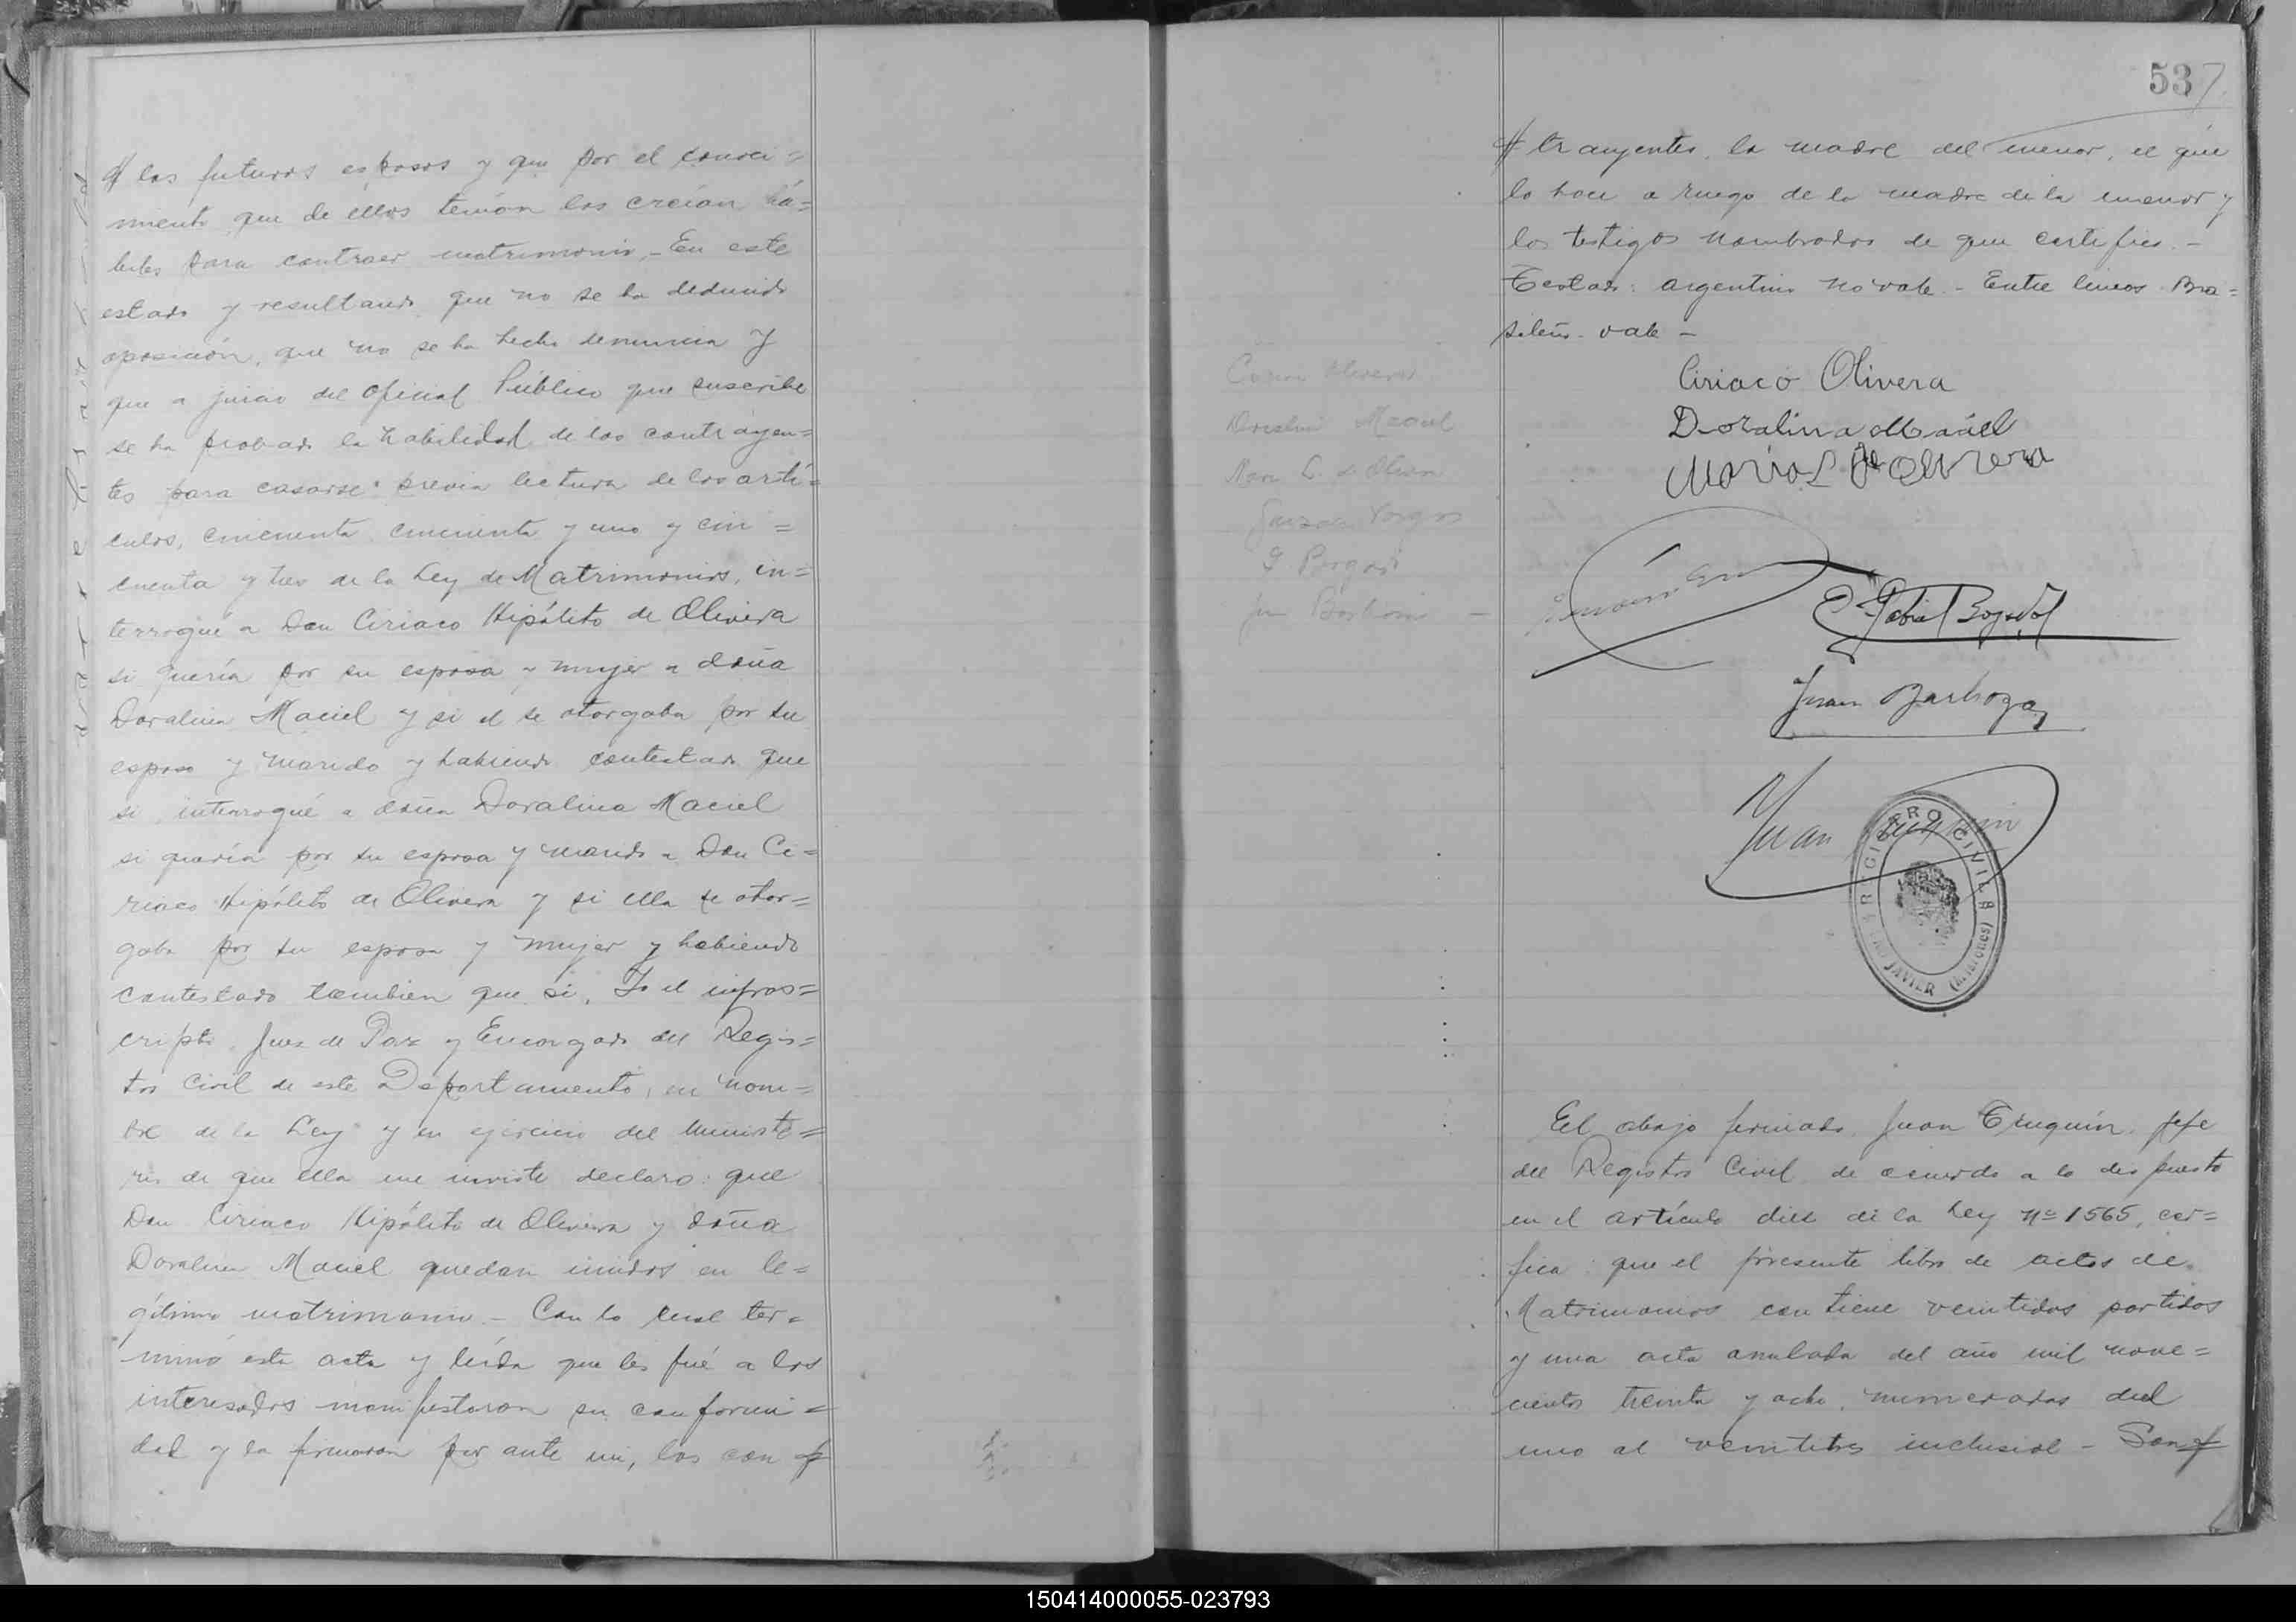 # los futuros esposos y que por el conoci=
miento que de ellos tenían los creían há=
biles para contraer matrimonio.- En este
estado y resultando que no se ha deducido
oposición, que no se ha hecho denuncia y
que a juicio del oficial Público que suscribe
se ha probado la habilidad de los contrayen=
tes para casarse previa lectura de los artí=
culos, cincuenta, cincuenta y uno y cin=
cuenta y tres de la Ley de Matrimonios, in=
terrogué a Don Ciriaco Hipólito de Olivera
si quería por su esposa y mujer a doña
Doralina Maciel y si el se otorgaba por su
esposo y marido y habiendo contestado que
si, interrogué a doña Doralina Maciel
si quería por su esposo y marido a Don Ci=
riaco Hipólito de Olivera y si ella se otor=
gaba por su esposa y mujer y habiendo
contestado tambien que si, Yo el infras=
cripto, Juez de Paz y Encargado del Regis=
tro Civil de este Departamento, en nom=
bre de la Ley y en ejercicio del ministe=
rio de que ella me inviste declaro: que
Don Ciriaco Hipólito de Olivera y doña
Doralina Maciel quedan unidos en le=
gítimo matrimonio.- Con lo cual ter=
minó esta acta y leída que les fué a los
interesados manifestaron su conformi=
dad y la firmaron por ante mi, los con #
537
# trayentes, la madre del menor, el que
lo hace a ruego de la madre de la menor y
los testigos nombrados de que certifico.-
Testado: argentino no vale.- Entre lineas Bra=
sileño- vale-
Ciriaco Olivera
Doralina Maciel
Maria L de Olivera
Gabriel Bogado
Juan Barboza
Juan Truquin
REGISTRO CIVIL
JAVIER (Misiones)
El abajo firmado, Juan Truquín, Jefe
del Registro Civil, de acuerdo a lo dispuesto
en el artículo diez de la Ley nº 1565, cer=
fica: que el presente libro de actas de
Matrimonios contiene veintidos partidas
y una acta anulada del año mil nove=
cientos treinta y ocho, numeradas del
uno al veintitres inclusive - San #
150414000055-023793